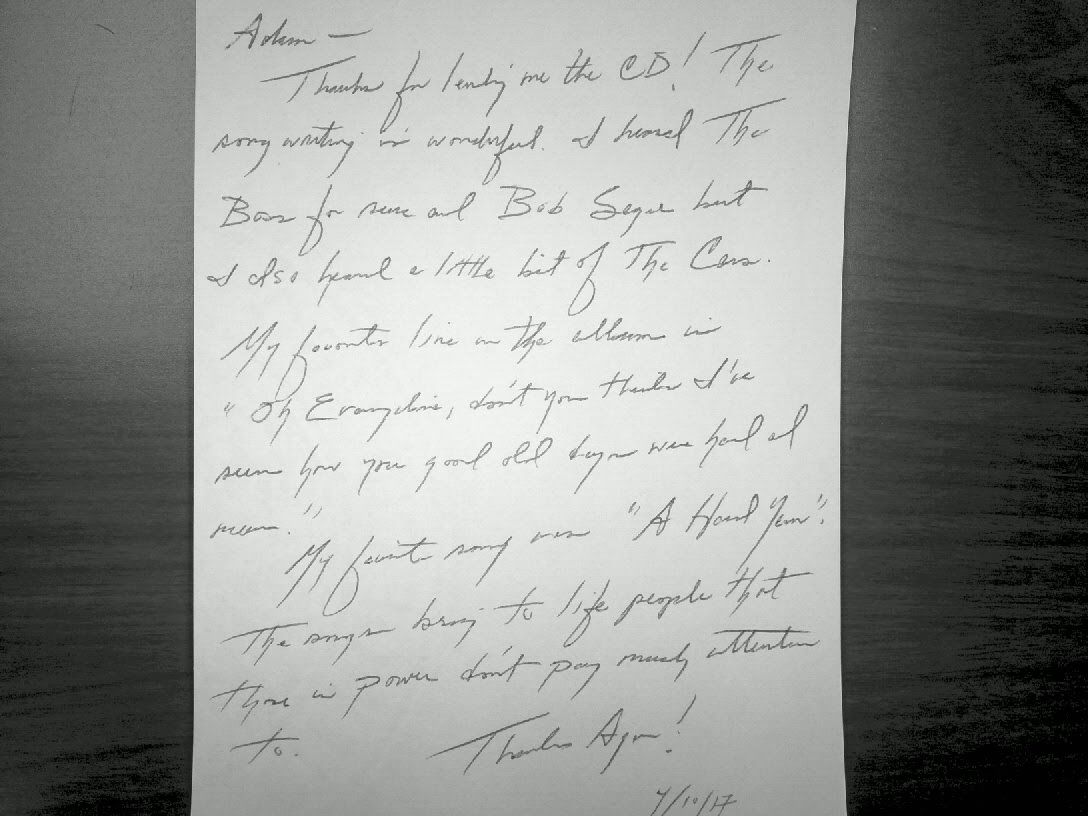 Adam —
Thanks for lending me the CD! The
song writing is wonderful. I heard The
Boss for sure and Bob Seger but
I also heard a little bit of The Cars.
My favorite line on the album is
"Oh Evangeline, don't you think I've
seen how your good old days were hard and
mean."
My favorite song was "A Hard Year".
The songs bring to life people that
those in power don't pay much attention
to. Thanks Again!
7/10/17